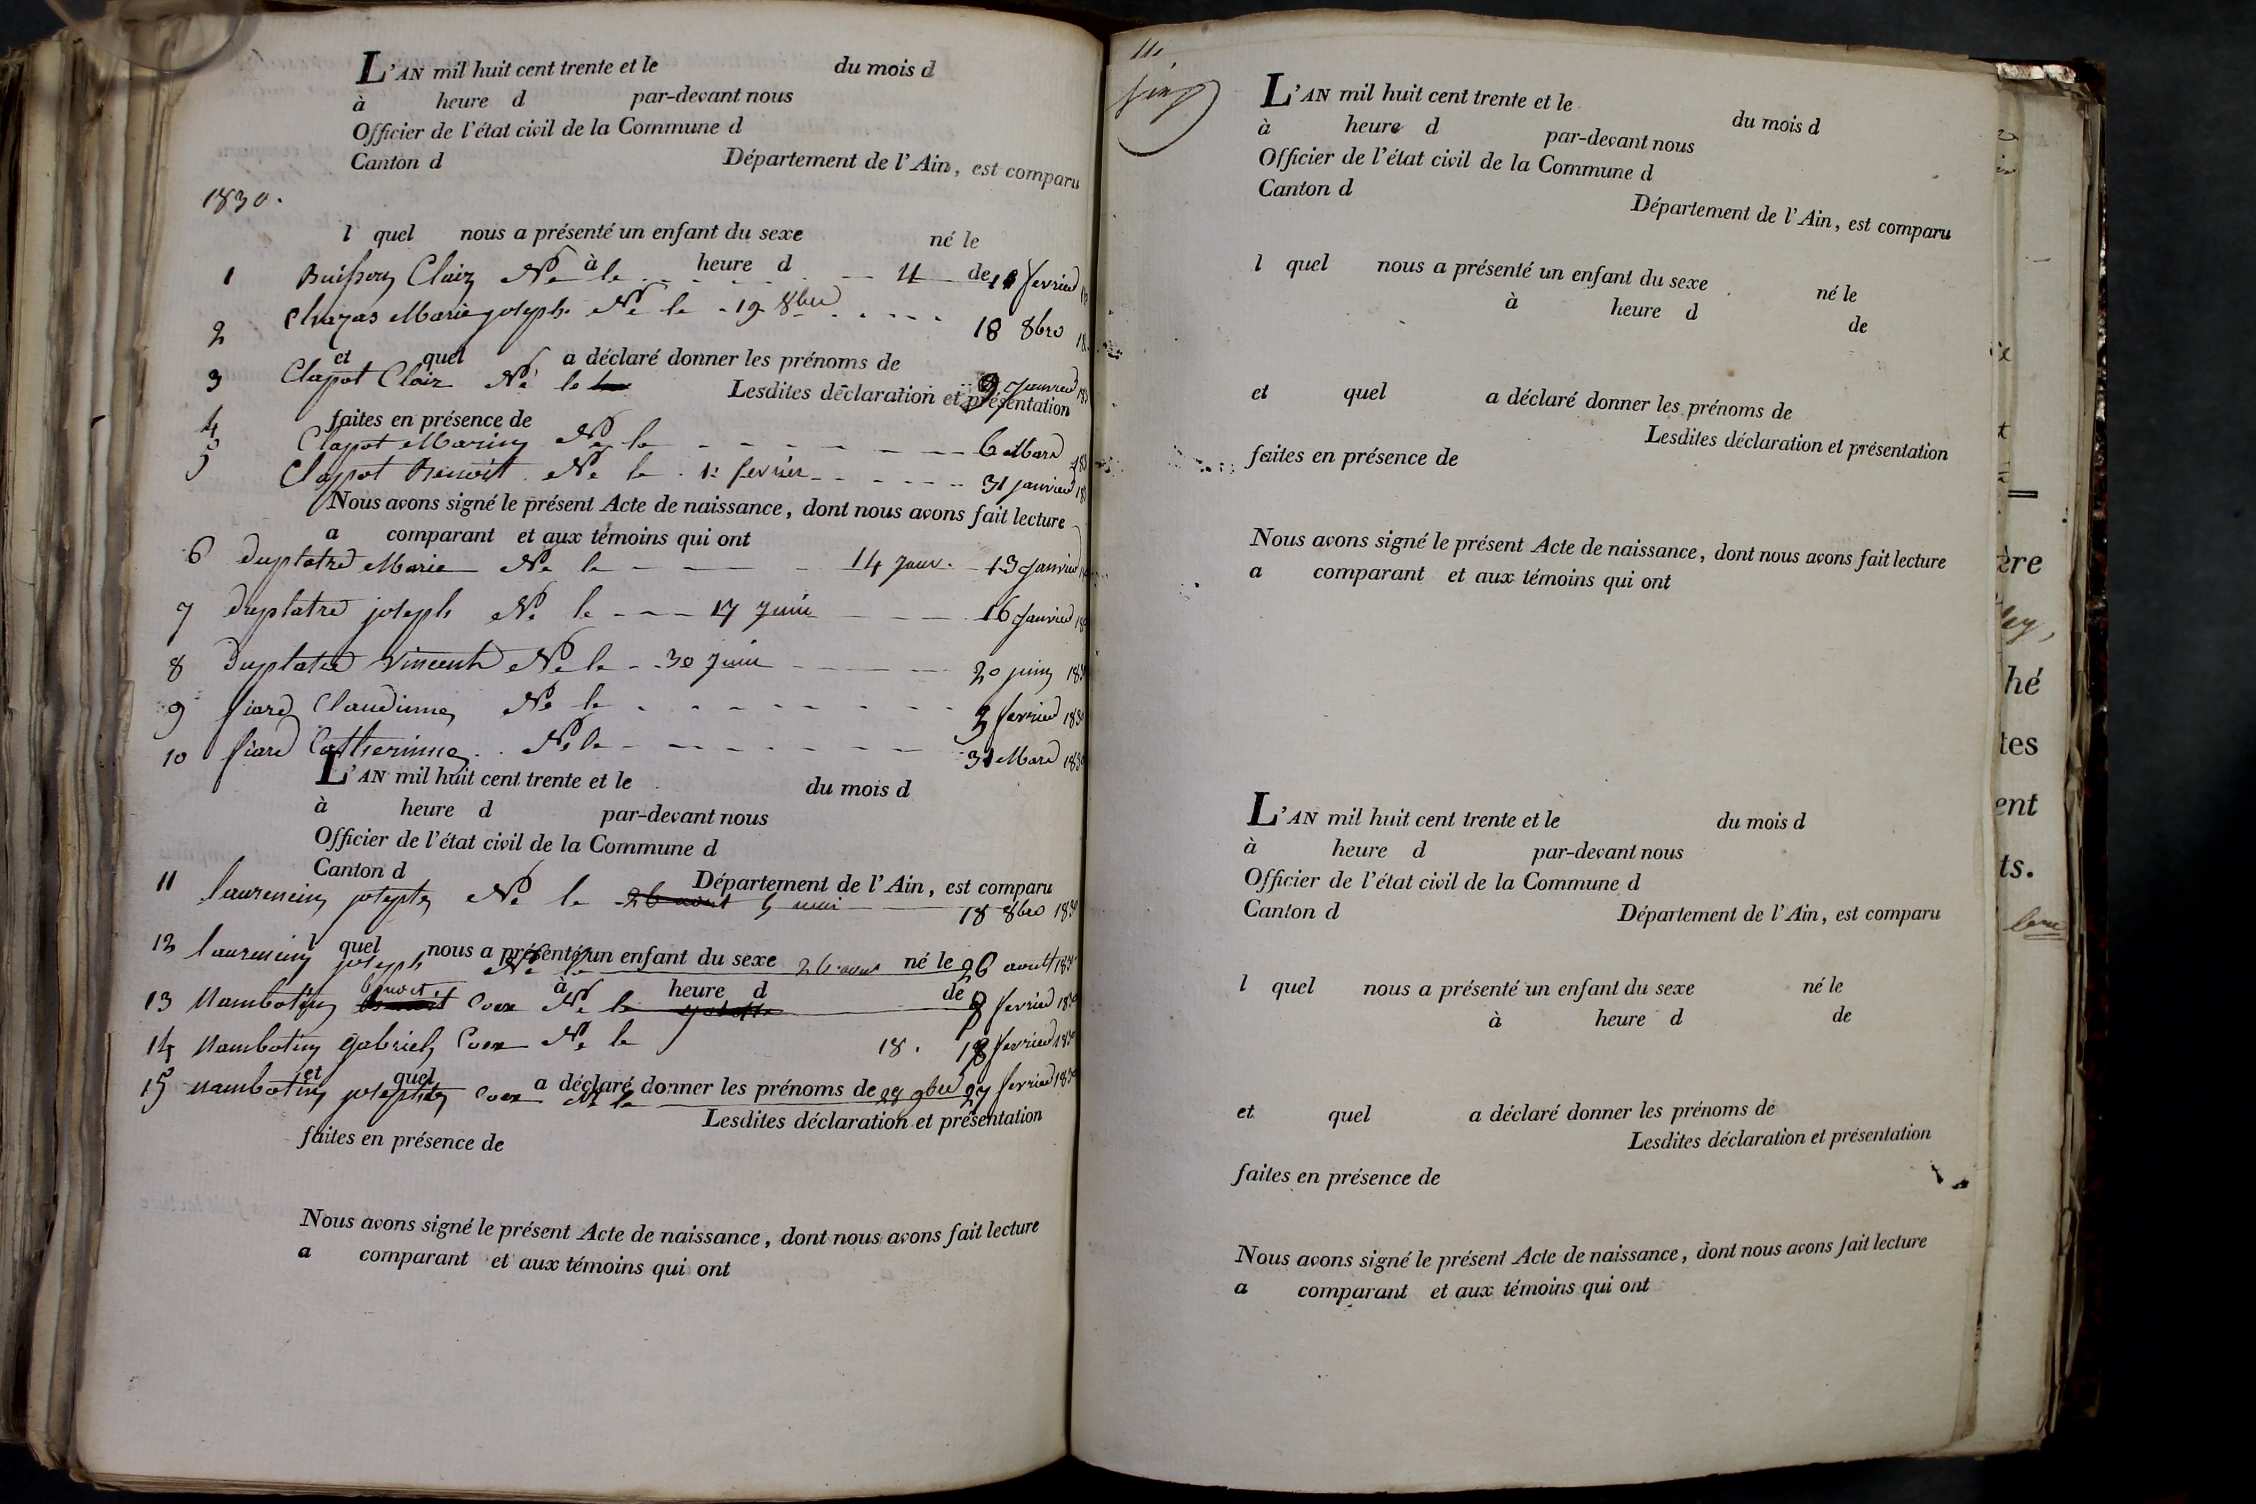 L'AN mil huit cent trente et le du mois d
à heure d par-devant nous
Officier de l'état civil de la Commune d
Canton d Département de l'Ain, est comparu
1830.
l quel nous a présenté un enfant du sexe né le
à heure d de
1 Clair Né le 11 fevrier
2 Chazas Marie joseph Né le 19 8bre 18 8bre 18
et quel a déclaré donner les prénoms de
3 Clapot Clair Né le 9 Janvier 18
Lesdites déclaration et présentation
faites en présence de
4 Clapot Né le 6 Mars 18
5 Clapot Benoit Né le 1r fevrier 31 janvier 18
Nous avons signé le présent Acte de naissance, dont nous avons fait lecture
a comparant et aux témoins qui ont
6 Duplatre Marie Né le 14 Janv. 13 Janvier
7 Duplatre joseph Né le 17 Juin 16 Janvier 18
8 Duplatre Vincent Né le 30 Juin 20 juin 183
9 fiard Claudinne Né le 3 fevrier 1830
10 fiard Catherinne Né le 31 Mars 1830
L'AN mil huit cent trente et le du mois d
à heure d par-devant nous
Officier de l'état civil de la Commune d
Canton d Département de l'Ain, est comparu
11 laurencin Né le 26 aout 5 mai 18 8bre 1830
l quel nous a présenté un enfant du sexe né le
12 laurencin joseph Né le 26 aout 26 aout 1830
à heure d de
13 Nambotin benoit Né le 8 fevrier 1830
14 Nambotin Gabriel Né le 18. 18 fevrier 1830
et quel a déclaré donner les prénoms de
15 Nambotin Né le 28 9bre 27 fevrier 1830
Lesdites déclaration et présentation
faites en présence de
Nous avons signé le présent Acte de naissance, dont nous avons fait lecture
a comparant et aux témoins qui ont
L'AN mil huit cent trente et le du mois d
à heure d par-devant nous
Officier de l'état civil de la Commune d
Canton d Département de l'Ain, est comparu
l quel nous a présenté un enfant du sexe né le
à heure d de
et quel a déclaré donner les prénoms de
Lesdites déclaration et présentation
faites en présence de
Nous avons signé le présent Acte de naissance, dont nous avons fait lecture
a comparant et aux témoins qui ont
L'AN mil huit cent trente et le du mois d
à heure d par-devant nous
Officier de l'état civil de la Commune d
Canton d Département de l'Ain, est comparu
l quel nous a présenté un enfant du sexe né le
à heure d de
et quel a déclaré donner les prénoms de
Lesdites déclaration et présentation
faites en présence de
Nous avons signé le présent Acte de naissance, dont nous avons fait lecture
a comparant et aux témoins qui ont
ère
hé
tes
ent
ts.